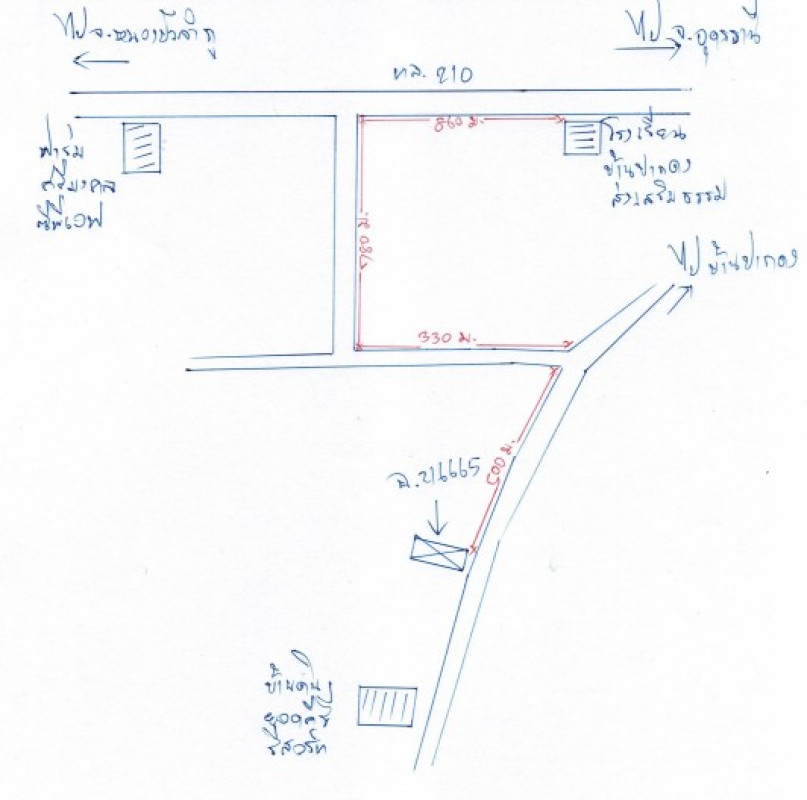 ไป จ.หนองบัวลำภู
ไป จ.อุดรธานี
ทล. 210
ฟาร์ม
ศรีมงคล
ซีพีเอฟ
860 ม.
โรงเรียน
บ้านป่าก้าว
ส่งเสริมธรรม
780 ม.
ไป
330 ม.
500 ม.
บ้านดิน
รีสอร์ท